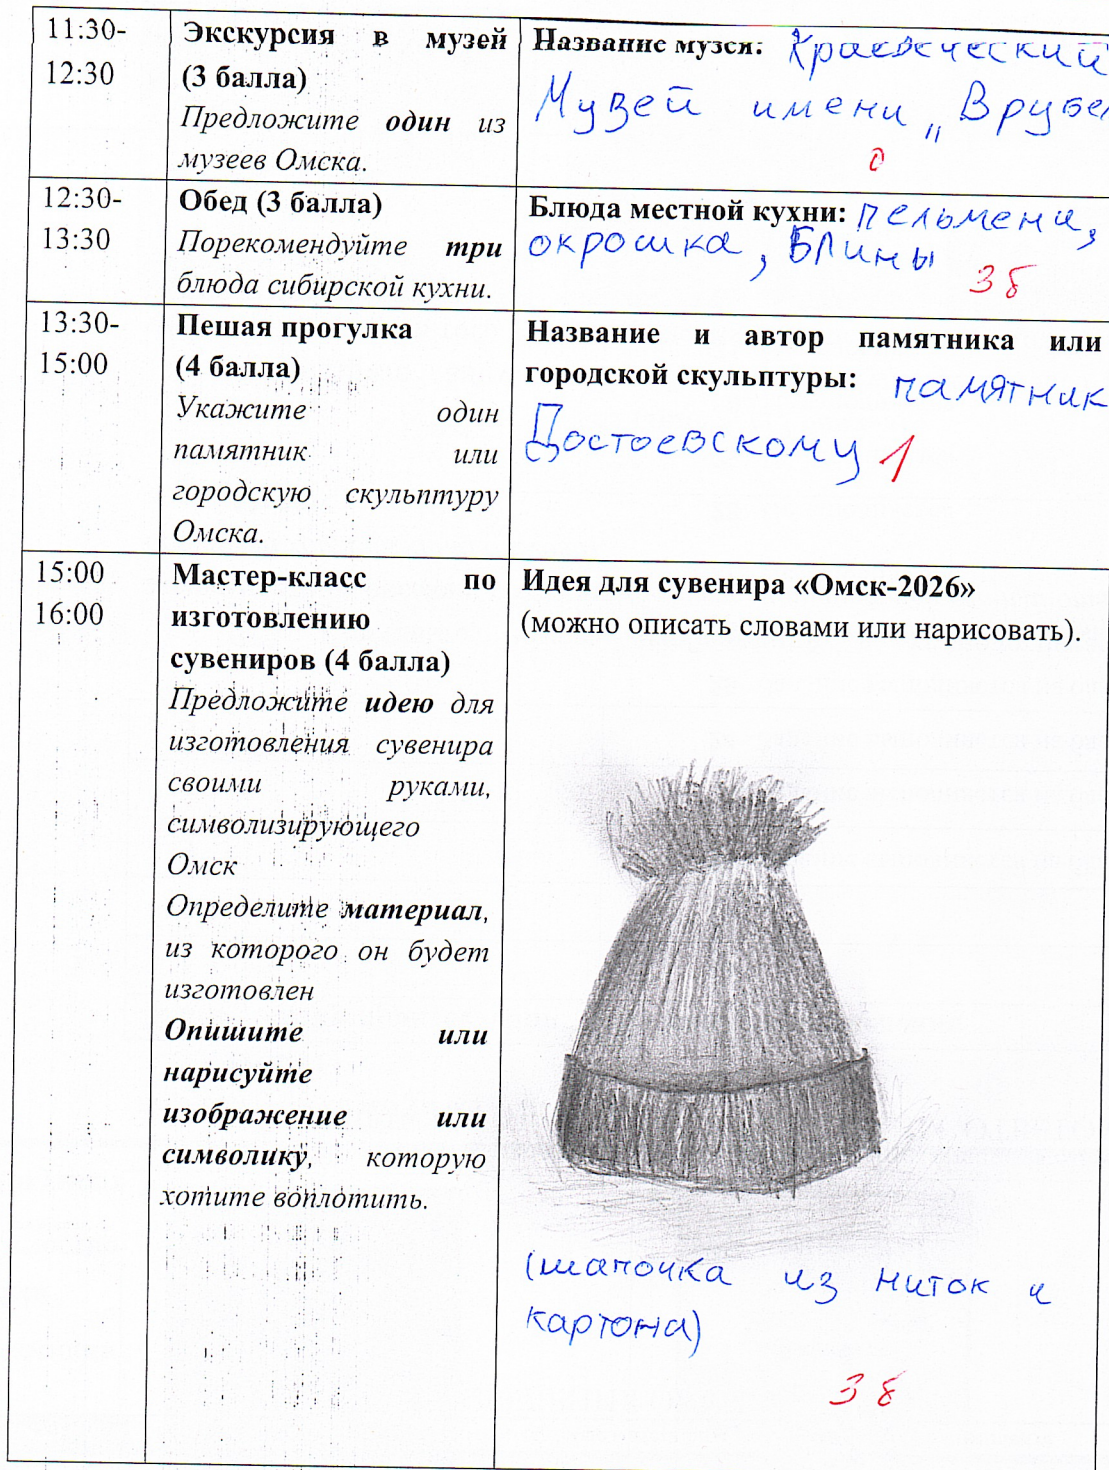 11:30-
12:30
Экскурсия в музей
(3 балла)
Предложите один из
музеев Омска.
Название музея: Краеведческий
Музей имени „Врубел
0
12:30-
13:30
Обед (3 балла)
Порекомендуйте три
блюда сибирской кухни.
Блюда местной кухни: пельмени,
окрошка, Блины
3 б
13:30-
15:00
Пешая прогулка
(4 балла)
Укажите один
памятник или
городскую скульптуру
Омска.
Название и автор памятника или
городской скульптуры: памятник
Достоевскому
1
15:00
16:00
Мастер-класс по
изготовлению
сувениров (4 балла)
Предложите идею для
изготовления сувенира
своими руками,
символизирующего
Омск
Определите материал,
из которого он будет
изготовлен
Опишите или
нарисуйте
изображение или
символику, которую
хотите воплотить.
Идея для сувенира «Омск-2026»
(можно описать словами или нарисовать).
(шапочка из ниток и
картона)
3 б